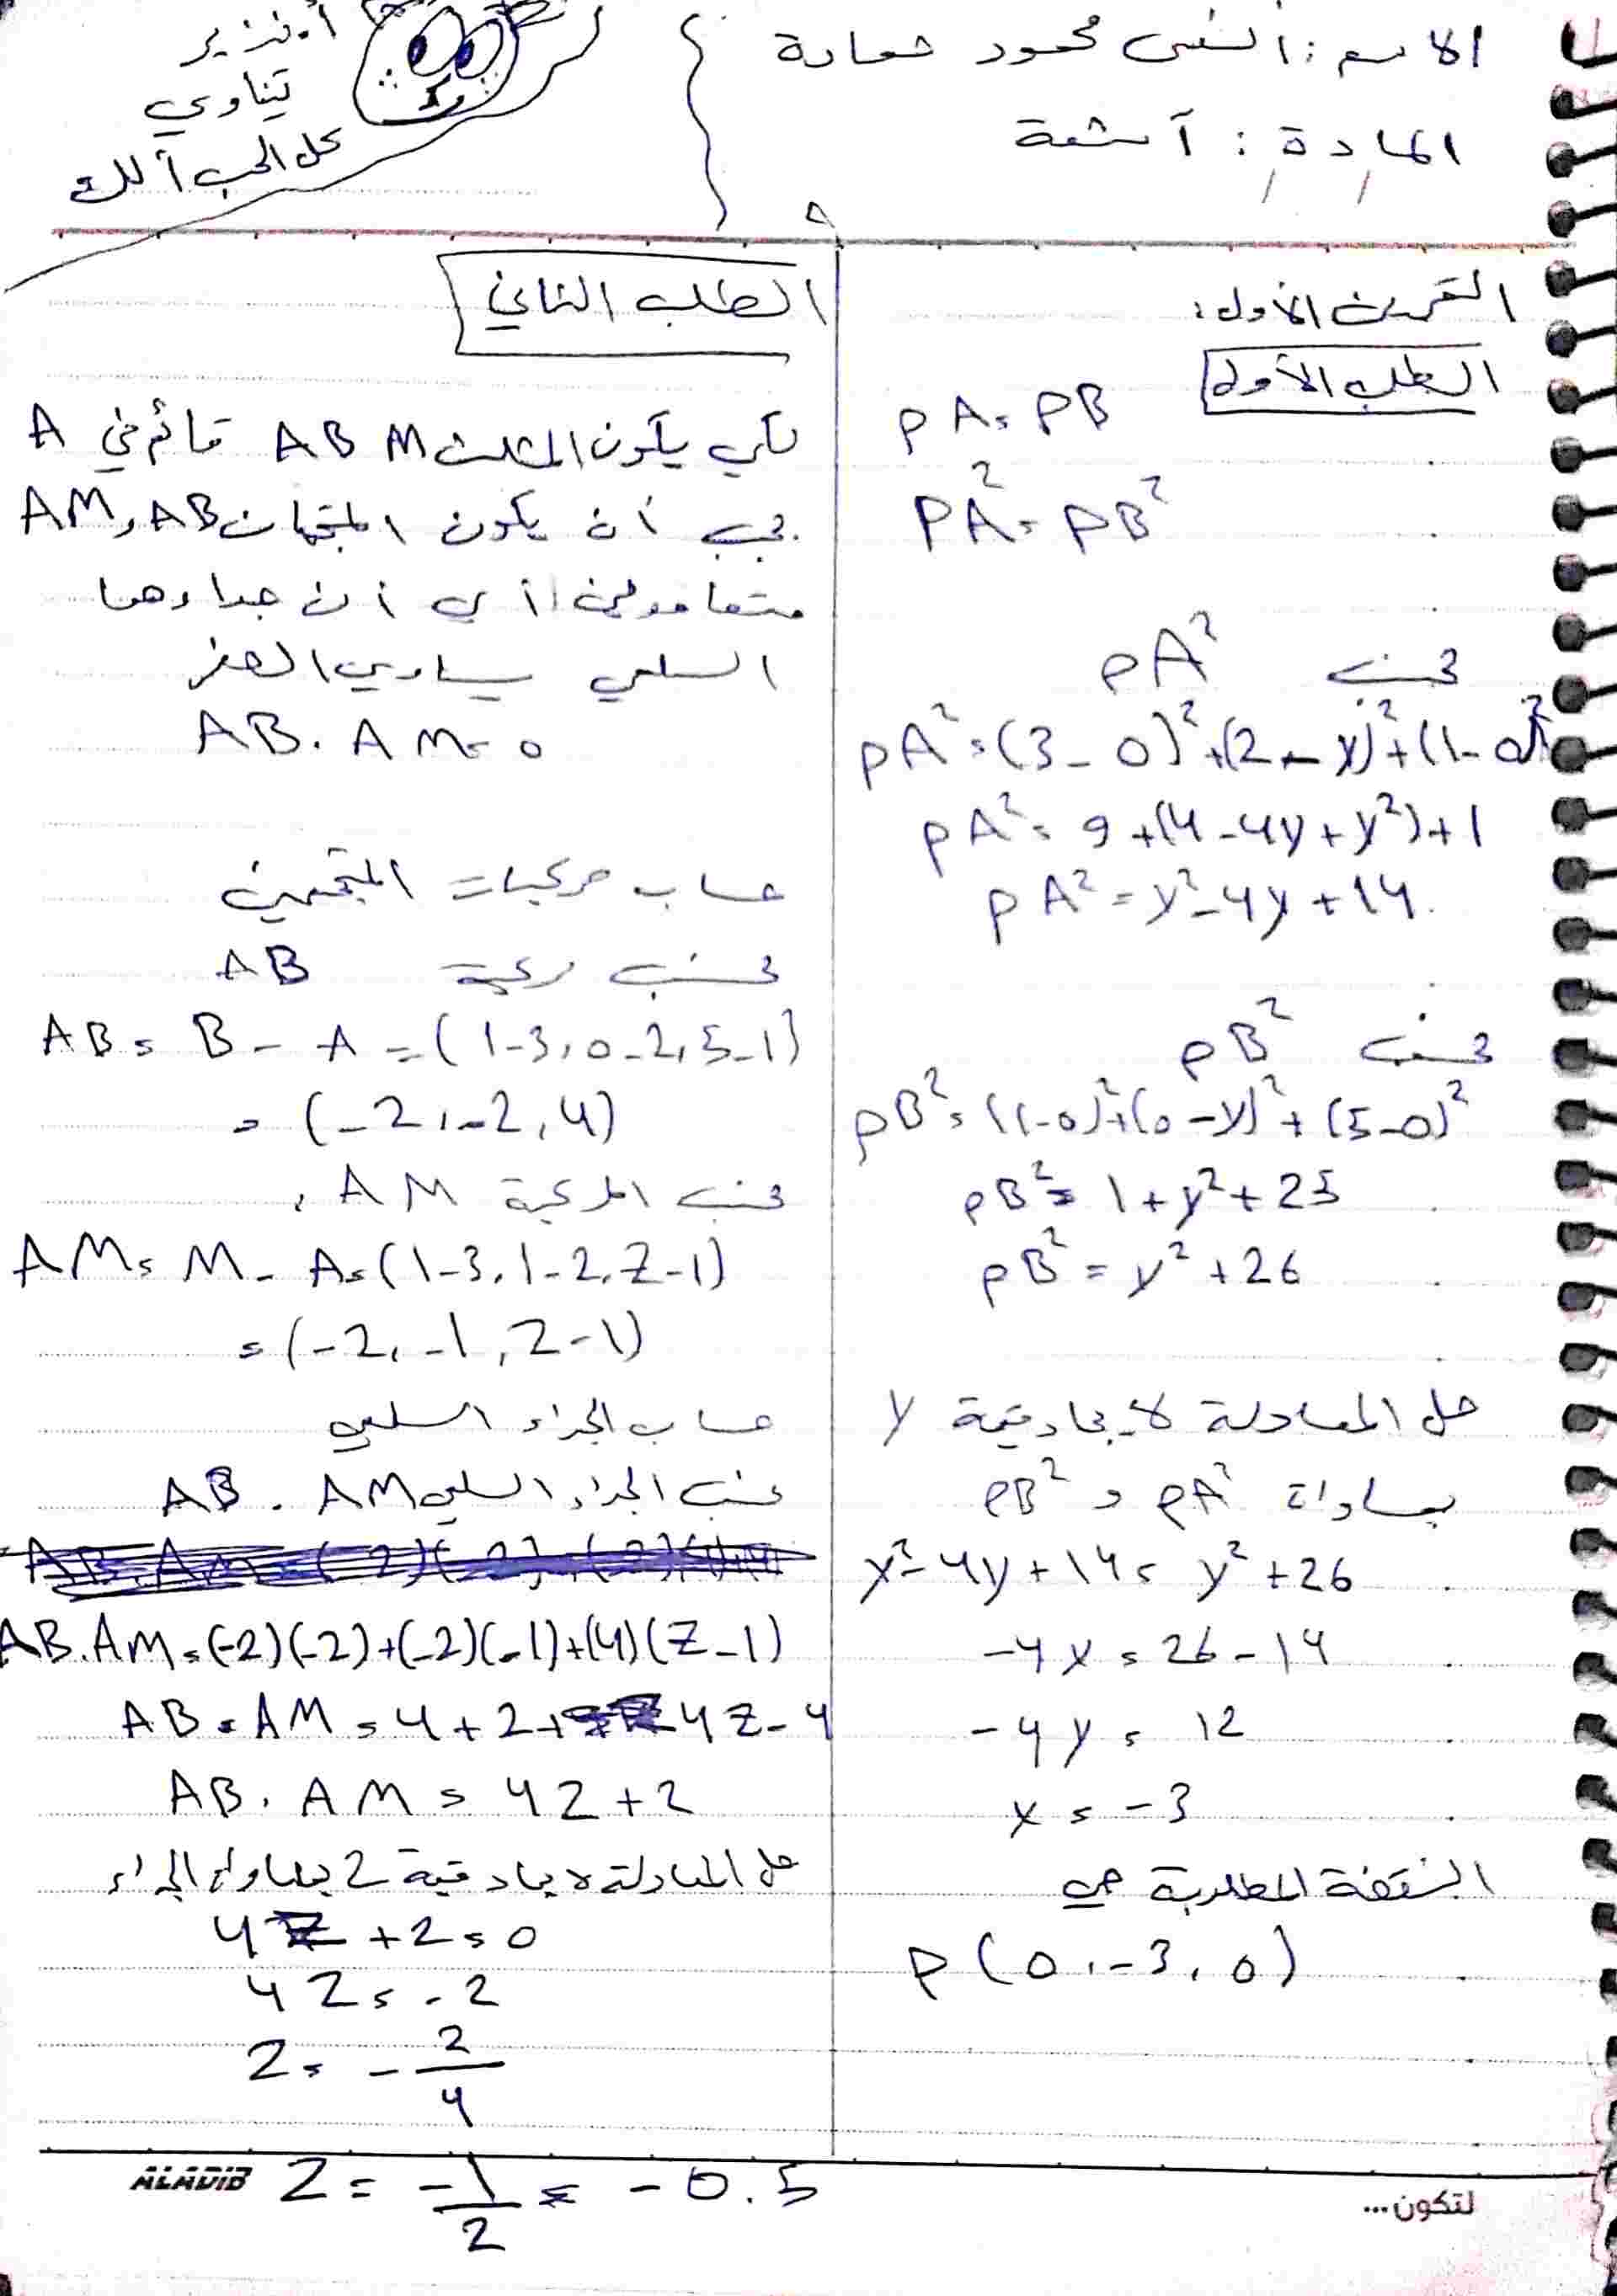 الاسم : انس محمود حمادة
المادة : أشعة
أ. نزير
تيناوي
كل الحب ألك
التمرين الأول :
الطلب الأول
PA = PB
PA² = PB²
نحسب PA²
PA² = (3 - 0)² + (2 - y)² + (1 - 0)²
PA² = 9 + (4 - 4y + y²) + 1
PA² = y² - 4y + 14
نحسب PB²
PB² = (1-0)² + (0 - y)² + (5-0)²
PB² = 1 + y² + 25
PB² = y² + 26
حل المعادلة لإيجاد قيمة y
بمساواة PA² و PB²
y² - 4y + 14 = y² + 26
-4y = 26 - 14
-4y = 12
y = -3
النقطة المطلوبة هي
P (0, -3, 0)
الطلب الثاني
لكي يكون المثلث ABM قائم في A
يجب أن يكون المتجهان AM, AB
متعامدين أي أن جداءهما
السلمي يساوي الصفر
AB . AM = 0
حساب مركبات المتجهين
نحسب مركبة AB
AB = B - A = (1-3, 0-2, 5-1)
= (-2, -2, 4)
نحسب المركبة AM
AM = M - A = (1-3, 1-2, Z-1)
= (-2, -1, Z-1)
حساب الجداء السلمي
نحسب الجداء السلمي AB . AM
AB.AM = (-2)(-2) + (-2)(-1) + (4)(Z-1)
AB . AM = 4 + 2 + 4Z - 4
AB . AM = 4Z + 2
حل المعادلة لإيجاد قيمة Z بمساواة الجداء
4Z + 2 = 0
4Z = -2
Z = -2/4
Z = -1/2 = -0.5
ALADIB
لتكون...